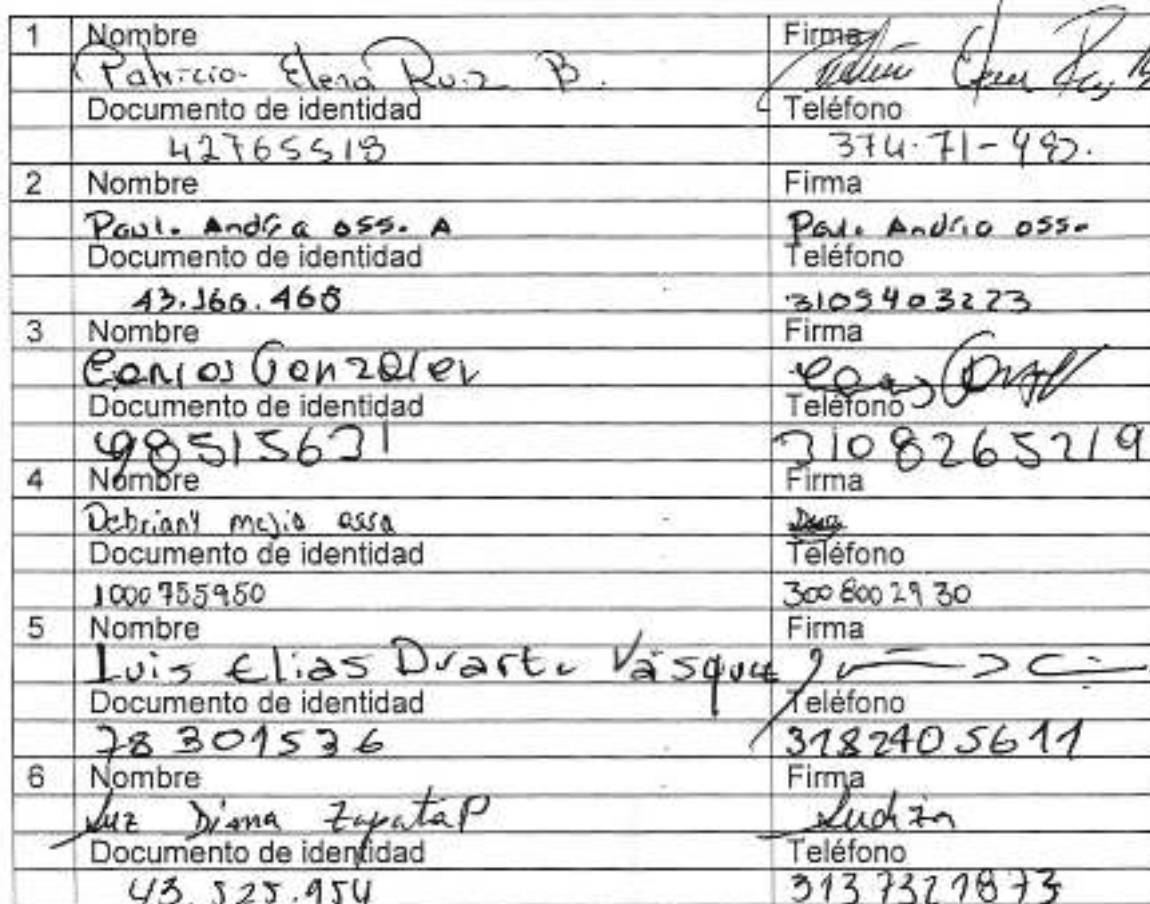 1 Nombre Firma
Patricia Elena Ruiz B.
Documento de identidad Teléfono
42765518 374-71-48
2 Nombre Firma
Paula Andrea Ossa A Paula Andrea Ossa
Documento de identidad Teléfono
43.166.468 3105403223
3 Nombre Firma
Carlos Gonzalez
Documento de identidad Teléfono
98515631 3108265219
4 Nombre Firma
Debriany mejia ossa
Documento de identidad Teléfono
1000755950 3008002930
5 Nombre Firma
Luis Elias Duarte Vásquez
Documento de identidad Teléfono
78301536 3182405611
6 Nombre Firma
Luz Diana Zapata P Ludiza
Documento de identidad Teléfono
43.525.954 3137321873